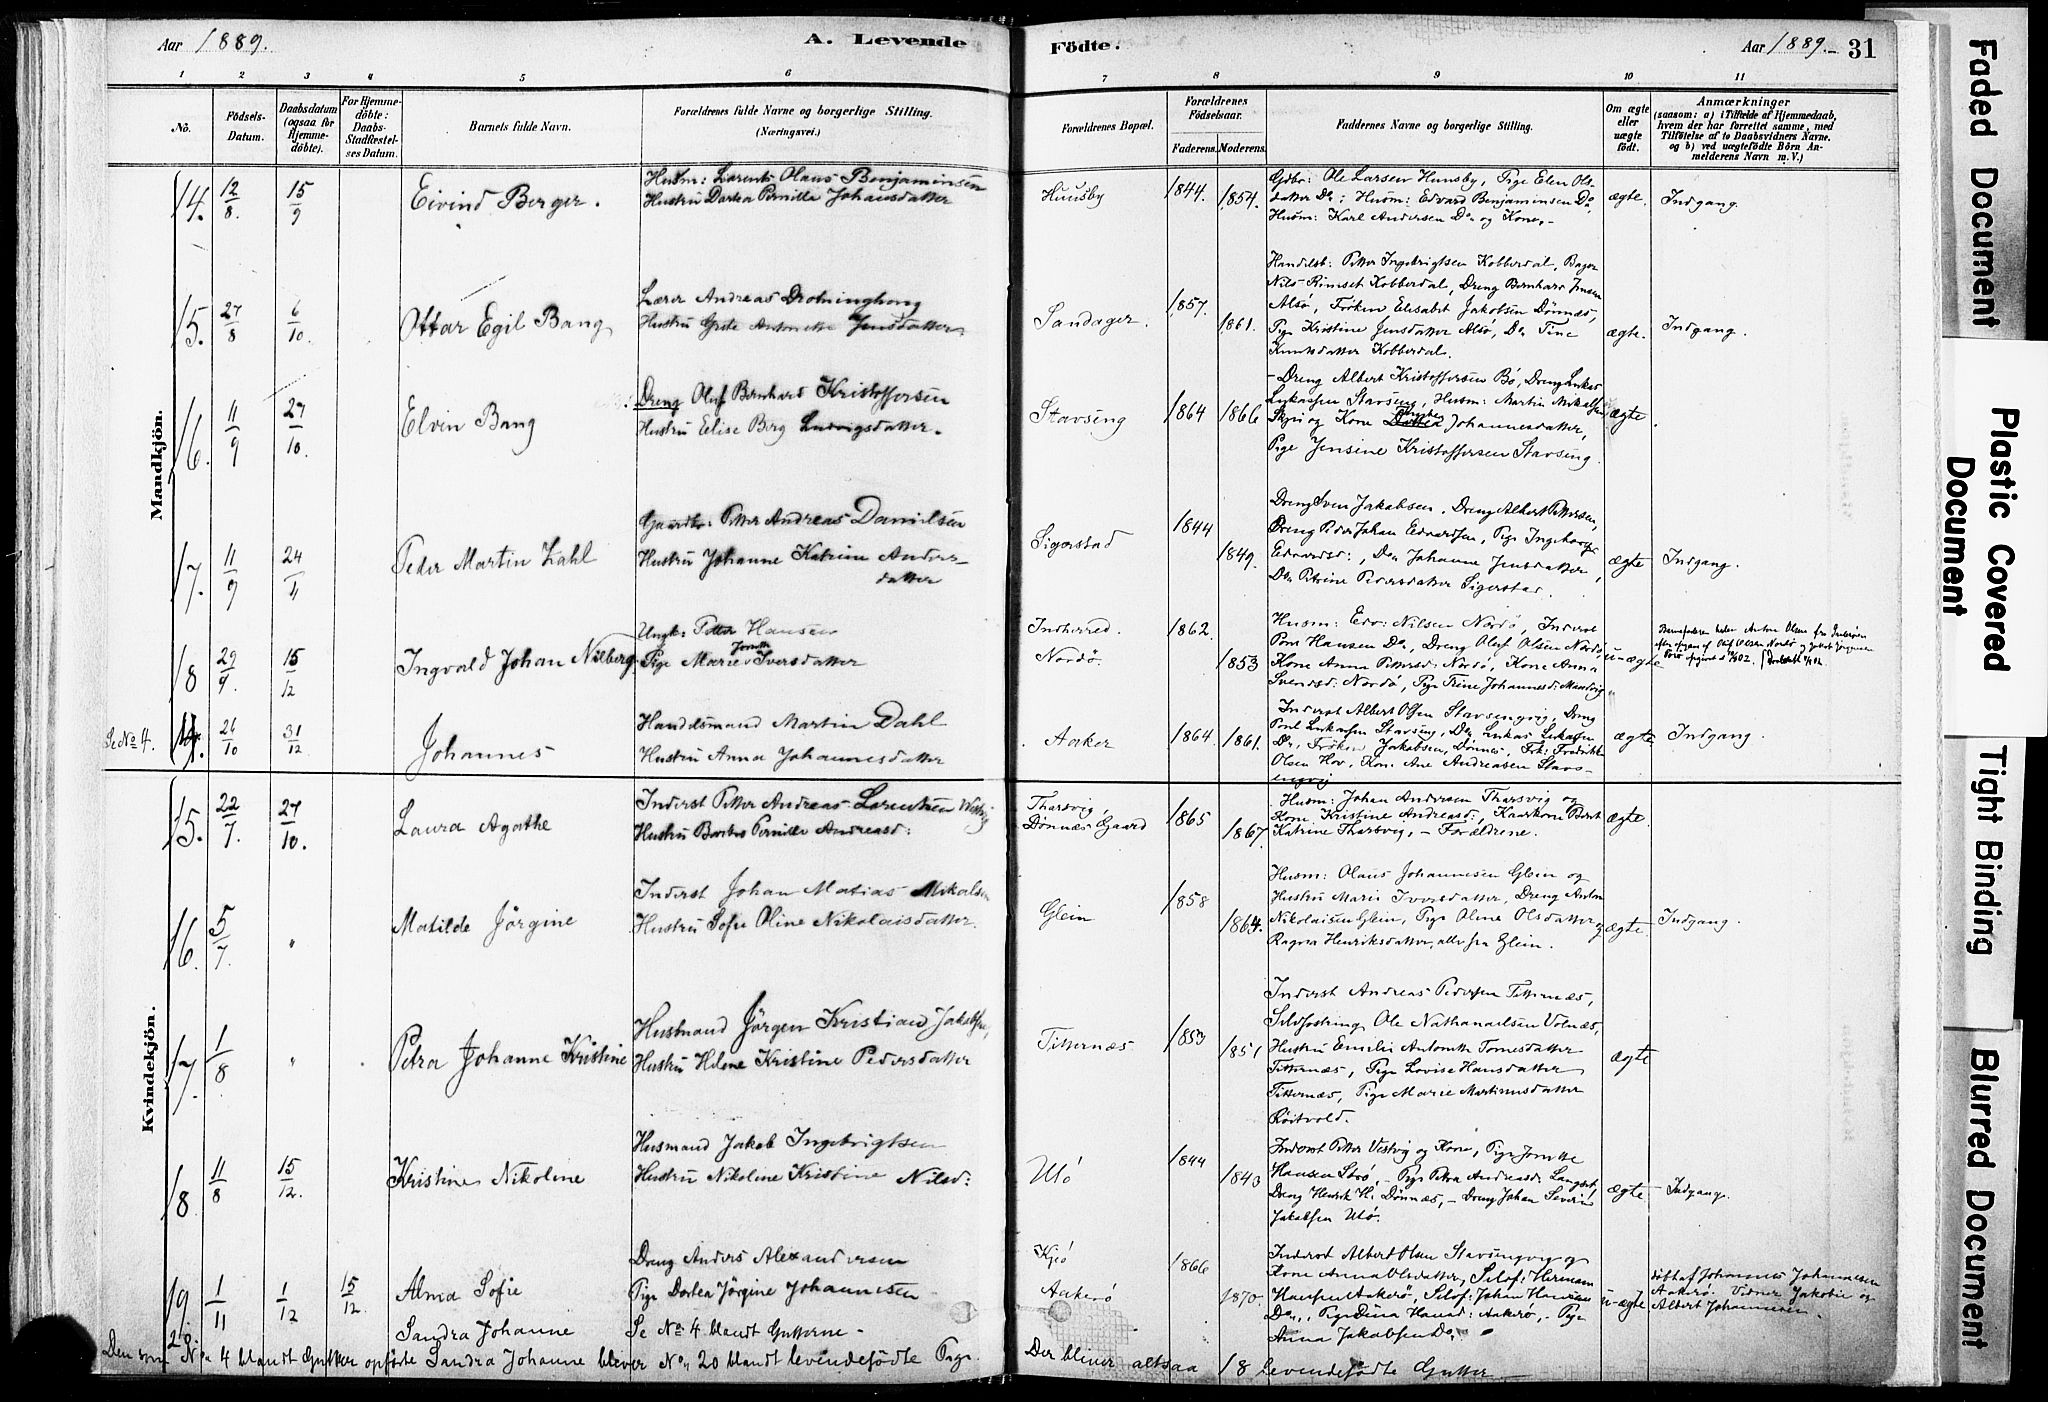 Aar 1889.
A. Levende
Födte.
Aar 1889. 31
1 2 3 4 5 6 7 8 9 10 11
No. Födsels-Datum. Daabsdatum (ogsaa for Hjemme-döbte). For Hjemme-döbte: Daabs-Stadfæstel-ses Datum. Barnets fulde Navn. Forældrenes fulde Navne og borgerlige Stilling. (Næringsvei.) Forældrenes Bopæl. Forældrenes Födselsaar. Faderens. Moderens. Faddernes Navne og borgerlige Stilling. Om ægte eller uægte födt. Anmærkninger
(saasom: a) i Tilfælde af Hjemmedaab, hvem der har forrettet samme, med Tilföielse af to Daabsvidners Navne. og b) ved uægtefödte Börn Anmelderens Navn m. V.)
Mandkjön.
14. 12/8 15/9 Eivind Berger.
Husm: Lorents Olaus Benjaminsen
Hustru Dortea Pernille Johansdatter
Huusby 1844. 1854.
Gdbr: Ole Larsen Huusby, Pige Elen Ols-
datter Do; Husm: Edvard Benjaminsen Do,
Husm: Karl Andersen Do og Kone,
ægte. Indgang.
15. 27/8 6/10 Ottar Egil Bang
Lærer Andreas Drotninghaug
Hustru Grete Antonette Jensdatter
Sandager. 1857. 1861.
Handelsb: Petter Ingebrigtsen Kobberdal, Bager
Nils Rimset Kobberdal, Dreng Bernhard Jensen
Alsø, Frøken Elisabet Jakobsen Dønnæs,
Pige Kristine Jensdatter Alsø, Do Tine
Knutsdatter Kobberdal.
ægte. Indgang.
16. 11/9 27/10 Elvin Bang
Dreng Oluf Bernhard Kristoffersen
Hustru Elise Berg Ludvigsdatter.
Stavseng 1864 1866
Dreng Albert Kristoffersen Bø, Dreng Lukas
Lukassen Stavseng, Husm: Martin Mikalsen
Skjei og Kone Johannesdatter,
Pige Jensine Kristoffersen Stavseng.
ægte.
17. 11/9 24/11 Peder Martin Zahl
Gaardbr: Petter Andreas Danielsen
Hustru Johanne Katrine Anders-
datter
Sigerstad 1844 1849.
Dreng Sven Jakobsen, Dreng Albert Pettersen,
Dreng Peder Johan Edvardsen, Pige Ingeborg
Edvardsd:, Do Johanne Jensdatter,
Do Petrine Pedersdatter Sigerstad.
ægte Indgang.
18 29/9 15/12 Ingvald Johan Nilberg
Ungk: Petter Hansen
Pige Marie Iversdatter
Indherred. Nordø. 1862. 1853
Husm: Edv: Nilsen Nordø, Inderst
Hansen Do, Dreng Oluf Olsen Nordø,
Kone Anna Pettersd: Nordø, Kone Anna
Svendsd: Nordø, Pige Trine Johannesd:
u-ægte
Se No 4. 26/10 31/12 Johannes
Handelsmand Martin Dahl
Hustru Anna Johannesdatter
Aaker 1864. 1861.
Inderst Albert Olsen Stavsengvig, Dreng
Poul Lukassen Stavseng, Do Lukas Lukassen
Do, Frøken Jakobsen, Dønnes, Frk: Fredrikke
Olsen Hov, Kone Ane Andreasen Stavs-
engvig
ægte Indgang.
Kvindekjön.
15. 22/7 27/10 Laura Agathe
Inderst Petter Andreas Lorentsen
Hustru Pernille Andreasd:
Tharsvig, Dønnæs Gaard 1865 1867.
Husm: Johan Andersen Tharsvig og
Kone Kristine Andreasd:, Kaarkone Berit
Katrine Tharsvig, - Forældrene.
ægte.
16. 5/7 " Matilde Jörgine
Inderst Johan Matias Mikalsen
Hustru Sofie Oline Nikolaisdatter.
Glein 1858 1864.
Husm: Olaus Johannesen Glein og
Hustru Marie Iversdatter, Dreng Anton
Nikolaisen Glein, Pige Oline Olsdatter og
Ragna Henriksdatter, alle fra Glein.
ægte. Indgang.
17. 1/8 " Petra Johanne Kristine
Husmand Jörgen Kristian Jakobsen,
Hustru Helene Kristine Pedersdatter
Titternæs 1853 1851
Inderst Andreas Pedersen Titternæs,
Ole Nathanaelsen Volnæs,
Hustru Emilie Antonette Tomesdatter
Titternæs, Pige Lovise Hansdatter
Titternæs, Pige Marie Martinusdatter
Röitvold.
ægte
18 11/8 15/12 Kristine Nikoline
Husmand Jakob Ingebrigtsen
Hustru Nikoline Kristine Nilsd:
Utö 1844 1843
Inderst Petter Vestvig og Kone, Pige
Hansen, Pige Petra Andreasd: Langset,
Dreng Henrik H. Dønnæs, - Dreng Johan Severin
Jakobsen Utø.
ægte Indgang.
19. 1/11 1/12 15/12 Alma Sofie
Dreng Anders Alexandersen
Pige Dortea Jörgine Johannesen
Kjø Aakerø 1866 1870.
Inderst Albert Olsen Stavsengvig og
Kone Anna Olsdatter, Selvf: Herman
Hansen Aakerø, Selvf: Johan Hansen
Do, Pige Dina Hansd: Aakerø, Pige
Anna Jakobsen Do.
u-ægte
döbt af Johannes Johannesen
Aakerø. Vidner Jakobine og
Albert Johannesen
Sandra Johanne Se No 4 blandt Gutterne
Den som No 4 blandt Gutter opførte Sandra Johanne bliver No 20 blandt levendefødte Piger.
Der bliver altsaa 18 Levendefødte Gutter
Faded Document
Plastic Covered Document
Tight Binding
Blurred Document